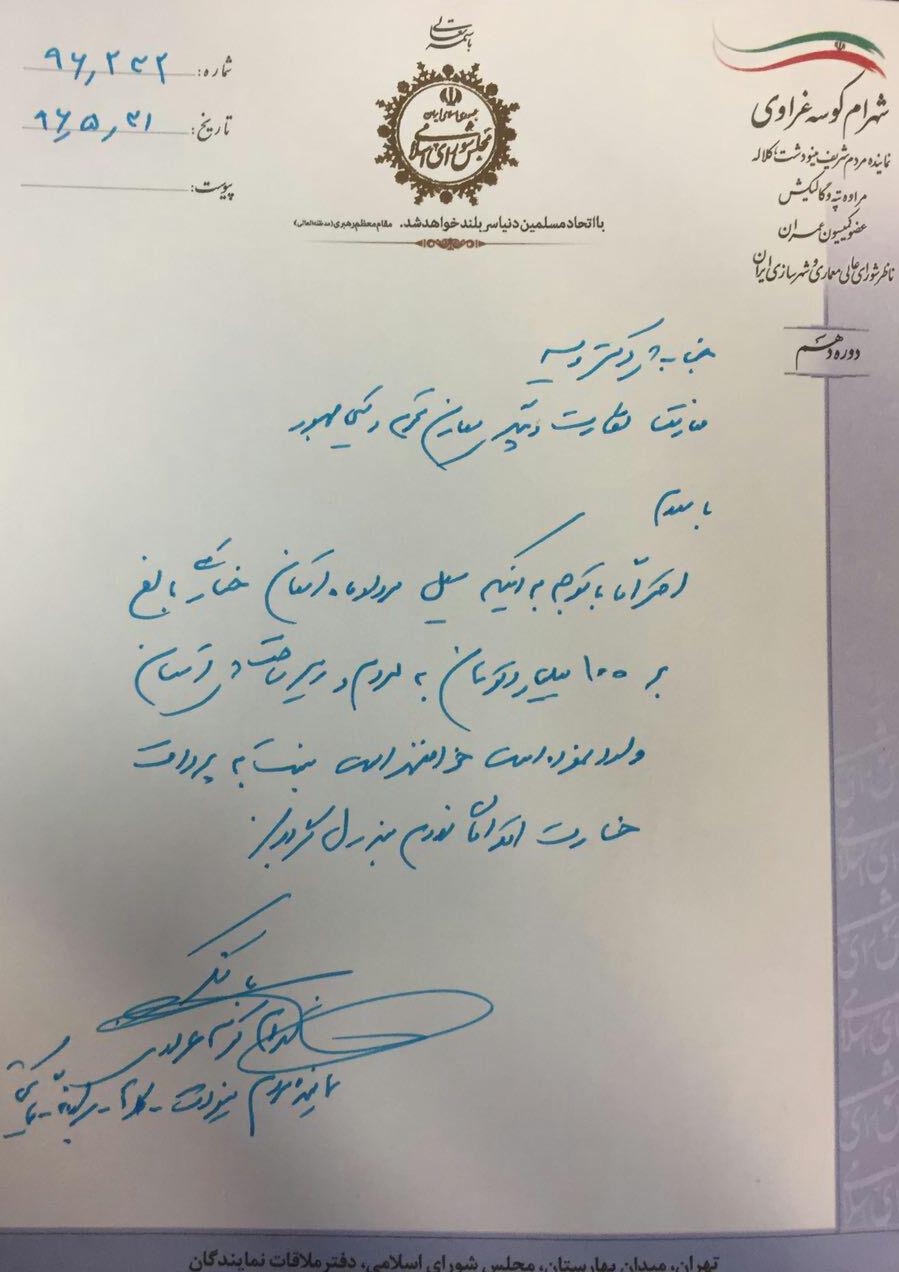 باسمه تعالی
جمهوری اسلامی ایران
مجلس شورای اسلامی
با اتحاد مسلمین دنیا سربلند خواهد شد. مقام معظم رهبری (مدظله العالی)
شهرام کوسه غراوی
نماینده مردم شریف مینودشت، کلاله
مراوه تپه و گالیکش
عضو کمیسیون عمران
ناظر شورای عالی معماری و شهرسازی ایران
دوره دهم
شماره: ۹۶٫۲۳۲
تاریخ: ۹۶٫۵٫۳۱
پیوست:
جناب دکتر
معاون محترم رئیس جمهور
با سلام
احتراماً با توجه به اینکه سیل مردادماه استان خساراتی بالغ
بر ۱۰۰ میلیارد تومان به مردم و زیرساخت استان
وارد نموده است خواهشمند است نسبت به پرداخت
خسارت اقدامات لازم مبذول گردد
با تشکر
شهرام کوسه غراوی
نماینده مردم مینودشت - کلاله - مراوه تپه - گالیکش
تهران، میدان بهارستان، مجلس شورای اسلامی، دفتر ملاقات نمایندگان